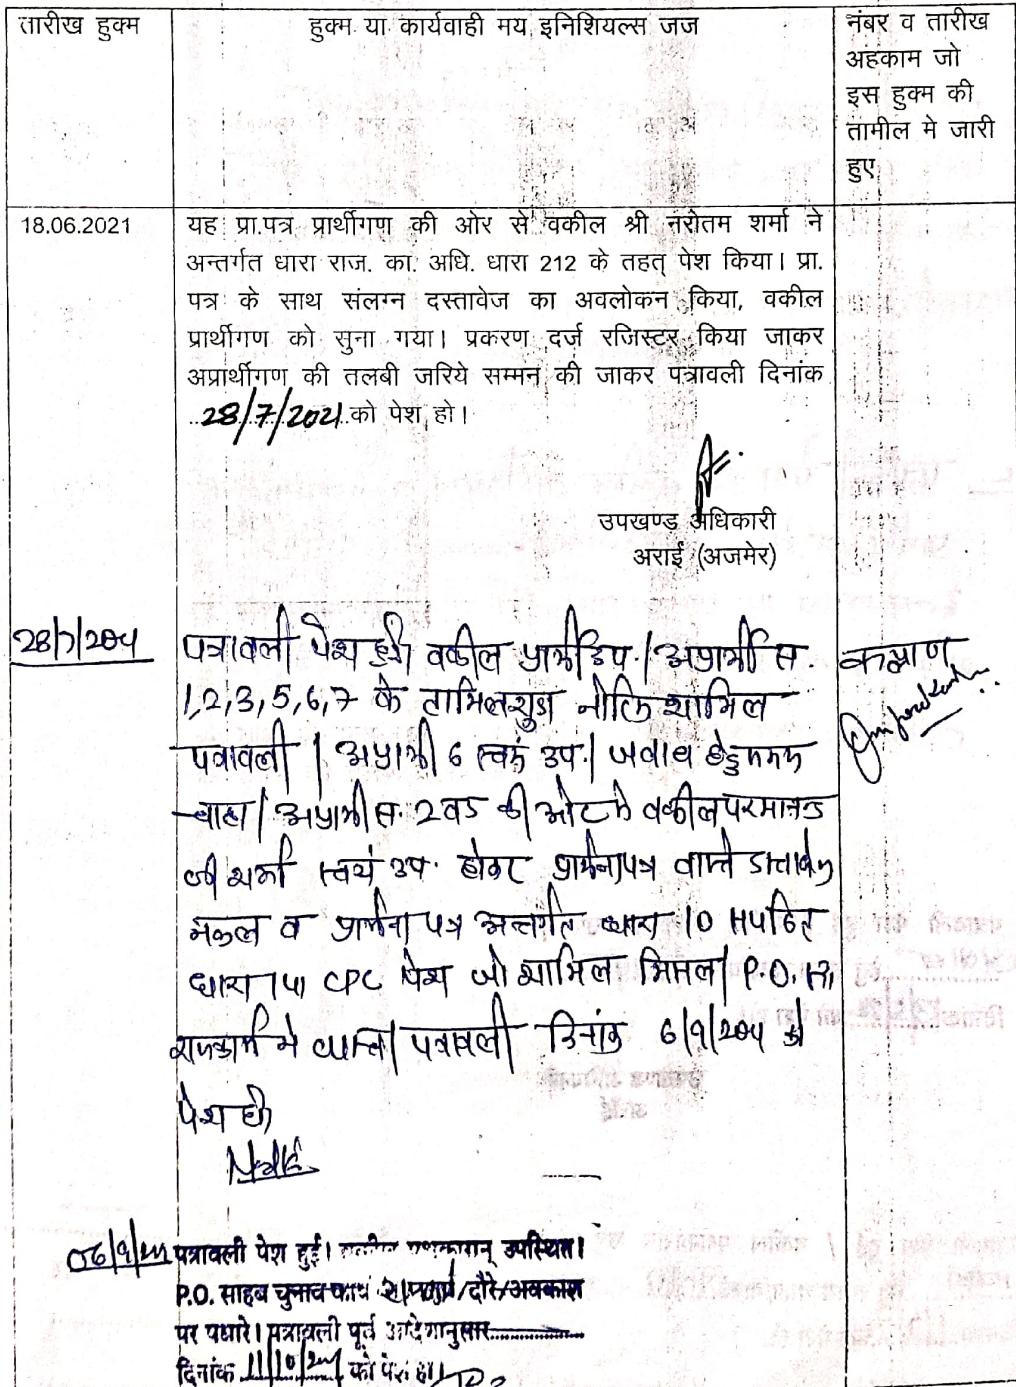 तारीख हुक्म
हुक्म या कार्यवाही मय इनिशियल्स जज
नंबर व तारीख
अहकाम जो
इस हुक्म की
तामील मे जारी
हुए
18.06.2021
यह प्रा.पत्र प्रार्थीगण की ओर से वकील श्री नरोतम शर्मा ने
अन्तर्गत धारा राज. का. अधि. धारा 212 के तहत् पेश किया। प्रा.
पत्र के साथ संलग्न दस्तावेज का अवलोकन किया, वकील
प्रार्थीगण को सुना गया। प्रकरण दर्ज रजिस्टर किया जाकर
अप्रार्थीगण की तलबी जरिये सम्मन की जाकर पत्रावली दिनांक
28/7/2021 को पेश हो।
उपखण्ड अधिकारी
अराई (अजमेर)
28/7/2021
पत्रावली पेश हुई। वकील प्रार्थी उप.। अप्रार्थी स.
1,2,3,5,6,7 के तामिलशुदा नोटिस शामिल
पत्रावली। अप्रार्थी 6 स्वयं उप.। जवाब हेतु समय
चाहा। अप्रार्थी स. 2 व 5 की ओर से वकील परमानन्द
जी शर्मा स्वयं उप. होकर प्रार्थनापत्र वास्ते दस्तावेज
नकल व प्रार्थना पत्र अन्तर्गत धारा 10 सपठित
धारा 151 CPC पेश जो शामिल मिसल। P.O. सा.
राजकार्य मे व्यस्त। पत्रावली दिनांक 6/9/2021 को
पेश हो।
कल्याण
06/9/21 पत्रावली पेश हुई। वकील पक्षकारान् उपस्थित।
P.O. साहब चुनाव कार्य /दौरे/अवकाश
पर पधारे। पत्रावली पूर्व आदेशानुसार
दिनांक 11/10/21 को पेश हो।